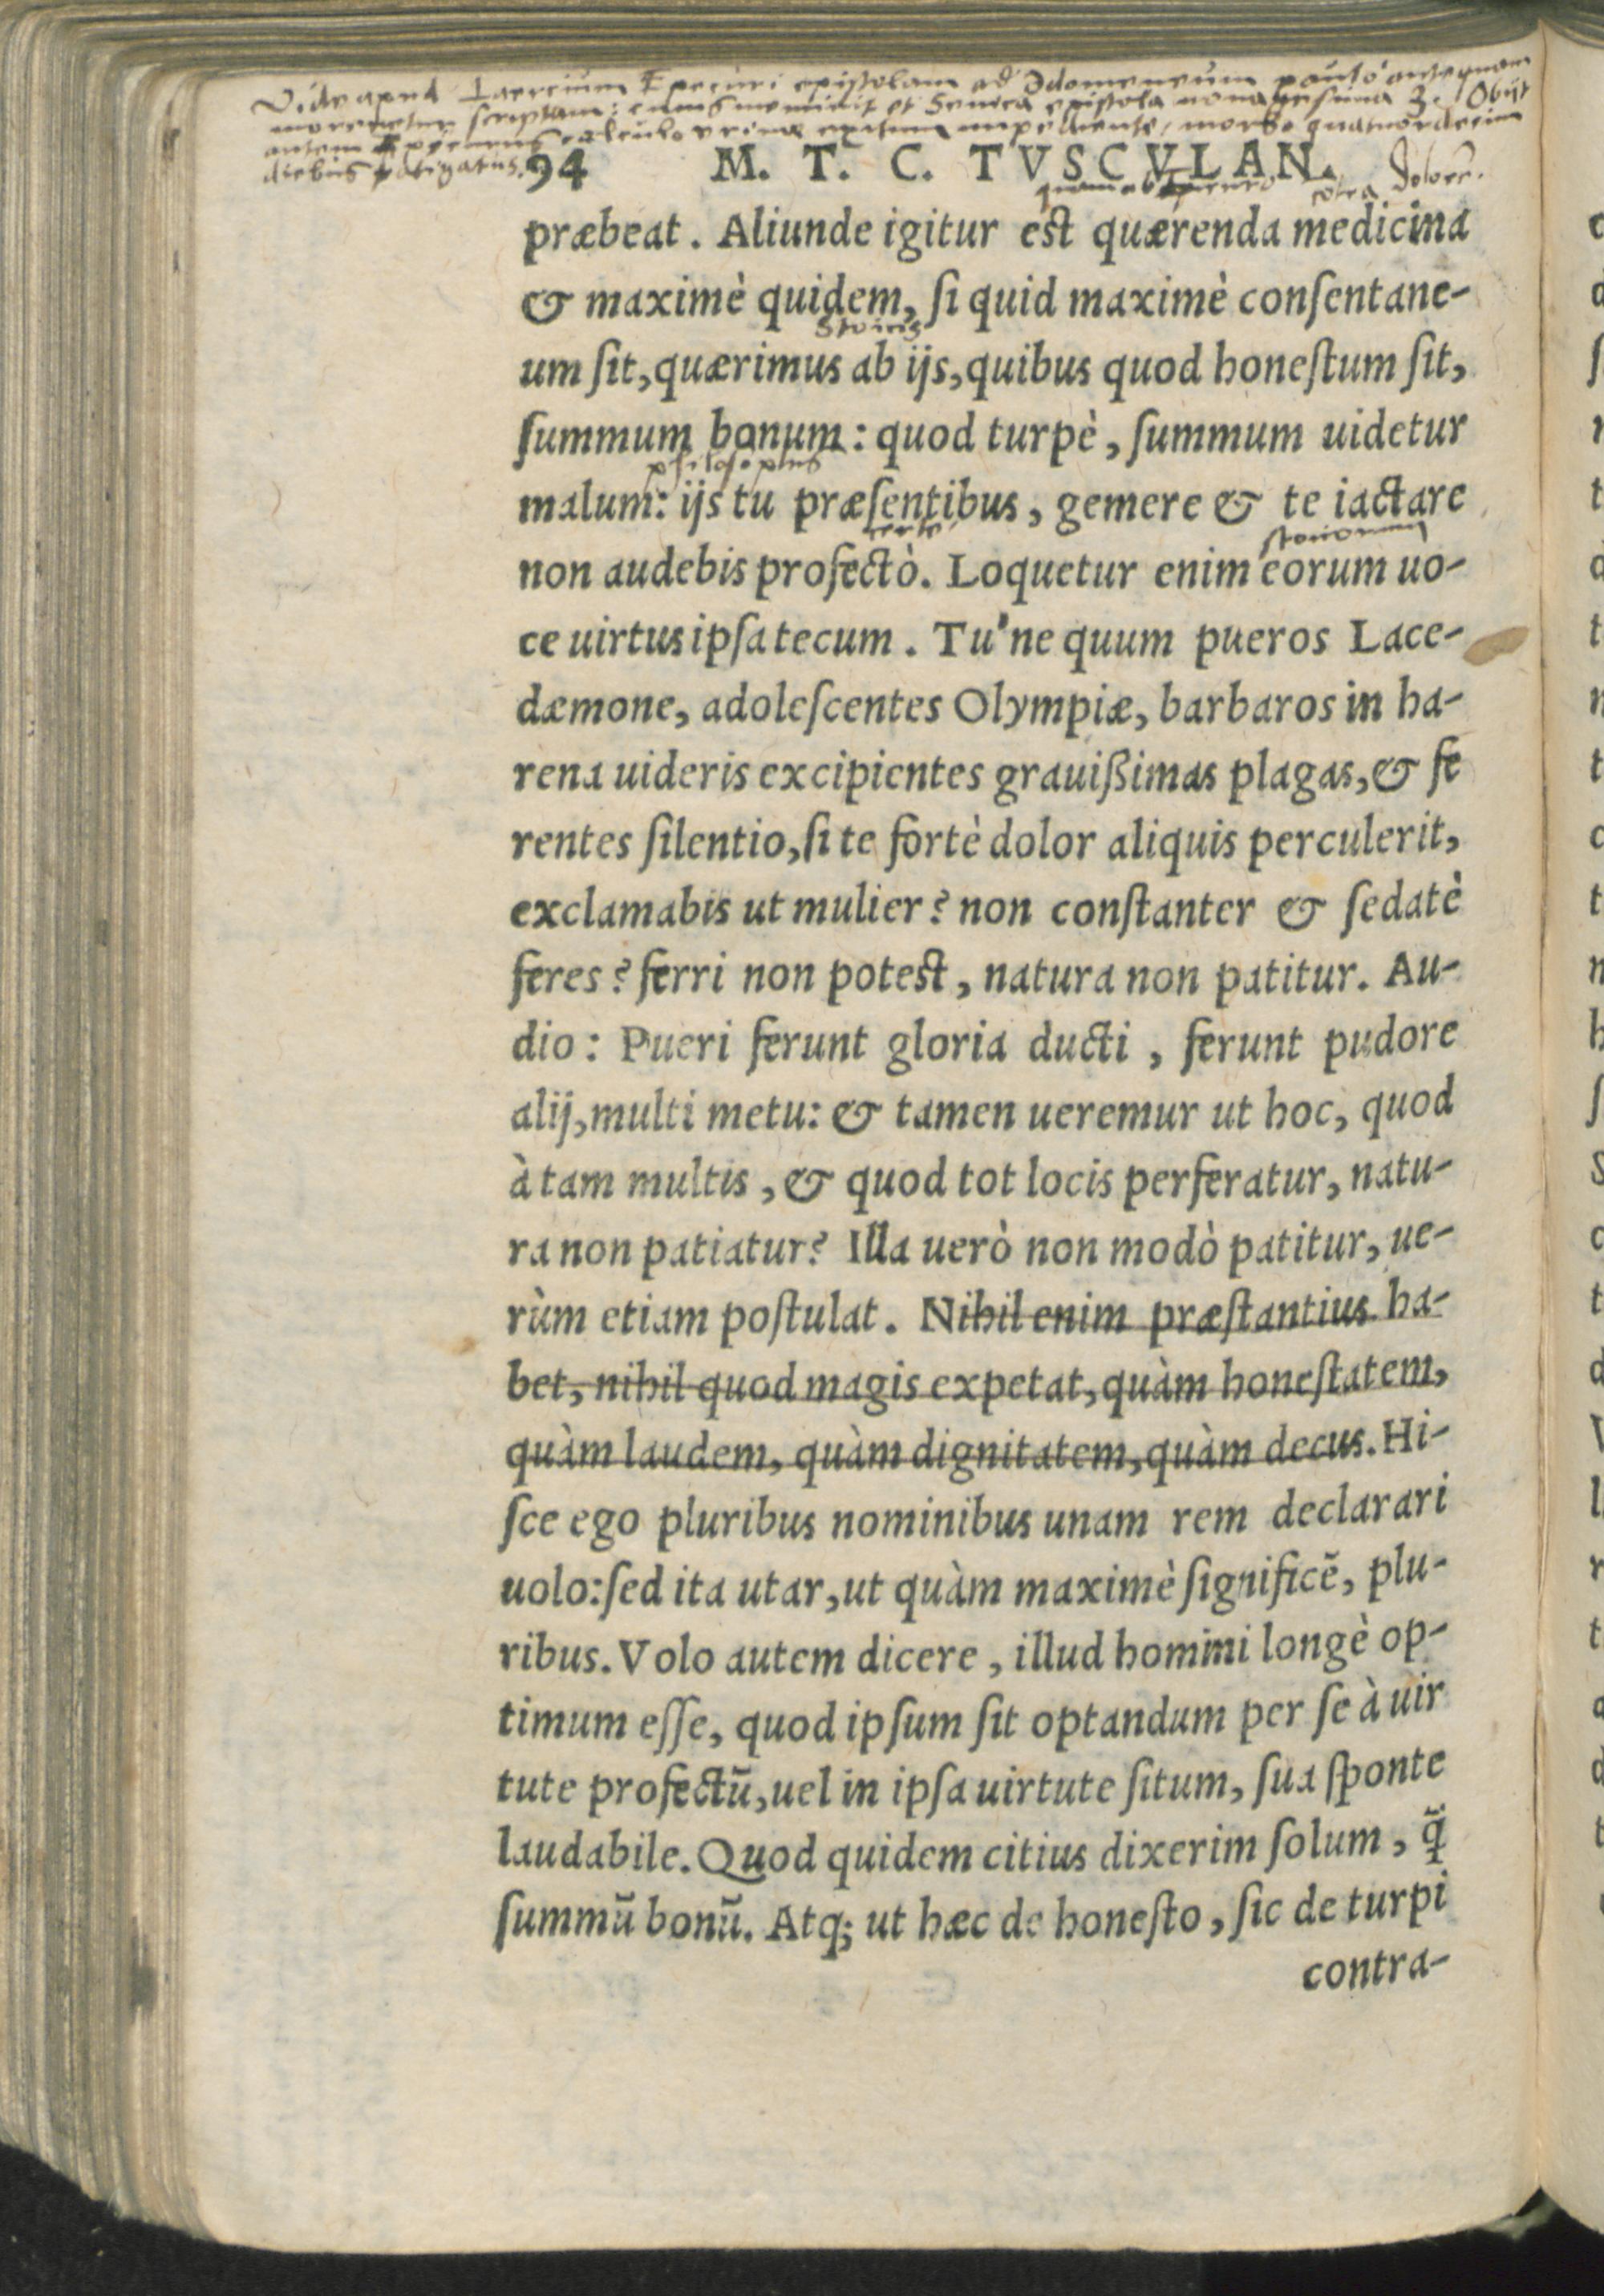 Vide apud Laercium Epicuri epistolam ad Idomeneum paulò antequam
moreretur scriptam: cuius meminit et Seneca epistola nonagesima 3. Obijt
autem Epicurus calculo urinae exitum impediente, morbo quatuordecim
diebus fatigatus.
94 M. T. C. TVSCVLAN.
quam ab Epicuro cõtra dolorẽ.
præbeat. Aliunde igitur est quærenda medicina
& maximè quidem, ſi quid maximè conſentane-
Stoicis
um ſit, quærimus ab ijs, quibus quod honeſtum ſit,
ſummum bonum: quod turpè, ſummum uidetur
philosophis
malum: ijs tu præſentibus, gemere & te iactare
certe
stoicorum
non audebis profectò. Loquetur enim eorum uo-
ce uirtus ipſa tecum. Tu'ne quum pueros Lace-
dæmone, adoleſcentes Olympiæ, barbaros in ha-
rena uideris excipientes grauißimas plagas, & fe
rentes ſilentio, ſi te fortè dolor aliquis perculerit,
exclamabis ut mulier? non conſtanter & ſedatè
feres? ferri non potest, natura non patitur. Au-
dio: Pueri ferunt gloria ducti, ferunt pudore
alij, multi metu: & tamen ueremur ut hoc, quod
à tam multis, & quod tot locis perferatur, natu-
ra non patiatur? Illa uerò non modò patitur, ue-
rùm etiam poſtulat. Nihil enim præſtantius ha-
bet, nihil quod magis expetat, quàm honeſtatem,
quàm laudem, quàm dignitatem, quàm decus. Hi-
ſce ego pluribus nominibus unam rem declarari
uolo: ſed ita utar, ut quàm maximè ſignificẽ, plu-
ribus. Volo autem dicere, illud homini longè op-
timum eſſe, quod ipſum ſit optandum per ſe à uir
tute profectũ, uel in ipſa uirtute ſitum, ſua ſponte
laudabile. Quod quidem citius dixerim ſolum, q̃
ſummũ bonũ. Atq; ut hæc de honeſto, ſic de turpi
contra-